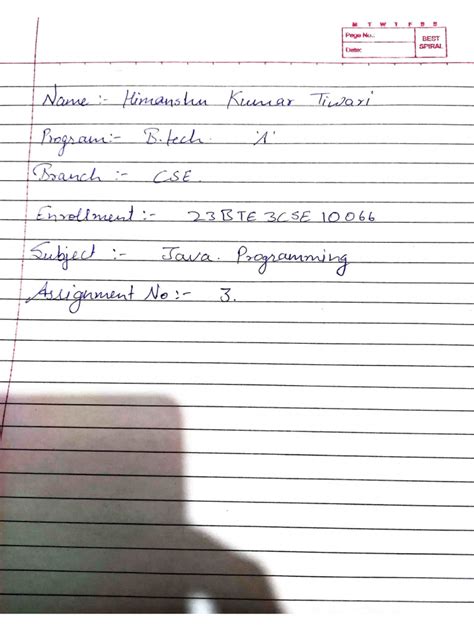 M T W T F S S
Page No.:
BEST SPIRAL
Date:
Name :- Himanshu Kumar Tiwari
Program:- B.tech. 'A'
Branch :- CSE.
Enrollment :- 23BTE3CSE10066
Subject :- Java. Programming
Assignment No :- 3.